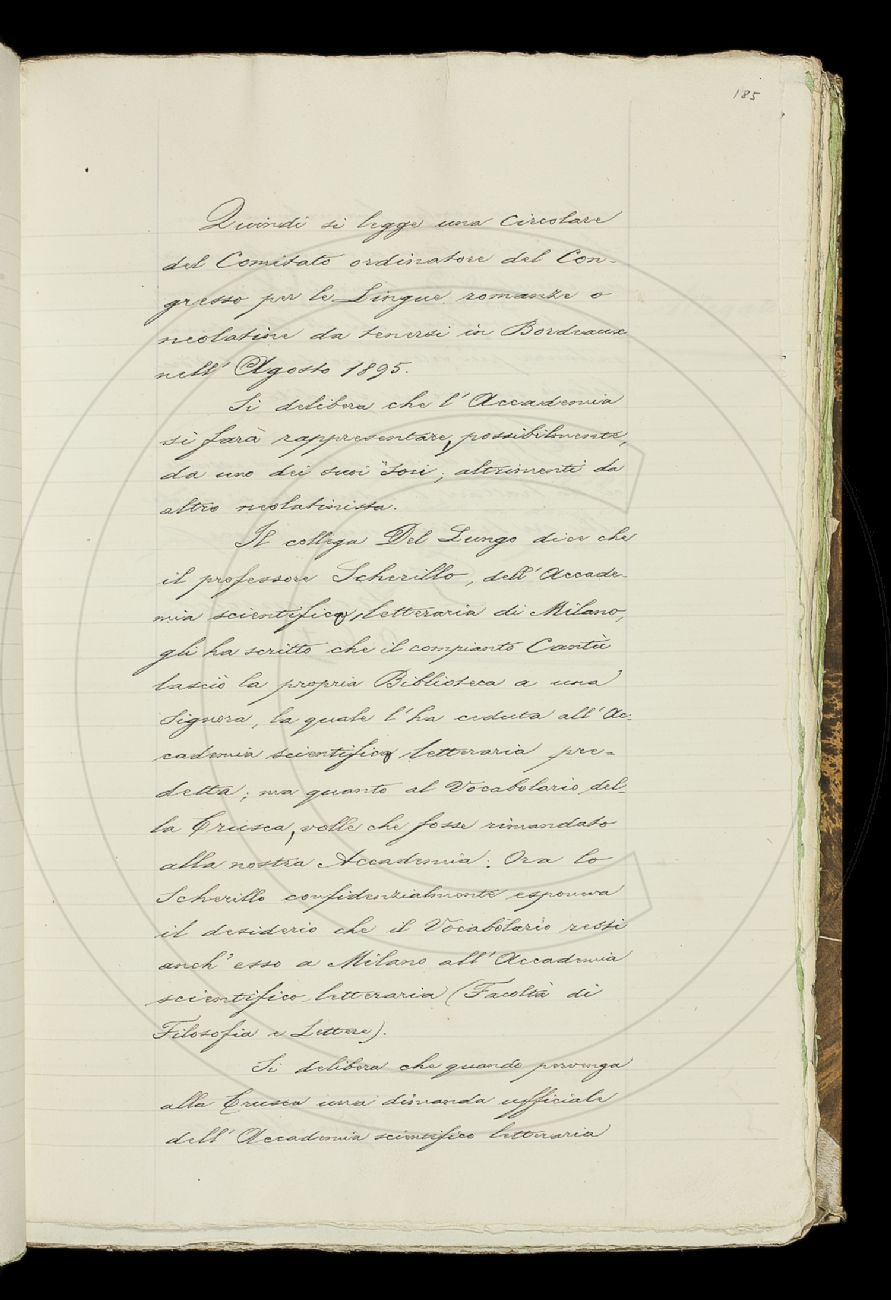 185
Quindi si legge una Circolare
del Comitato ordinatore del Con-
gresso per le Lingue romanze o
neolatine da tenersi in Bordeaux
nell' Agosto 1895.
Si delibera che l'Accademia
si farà rappresentare, possibilmente,
da uno dei suoi Soci; altrimenti da
altro neolatinista.
Il collega Del Lungo dice che
il professore Scherillo, dell'Accade-
mia scientifico letteraria di Milano,
gli ha scritto che il compianto Cantù
lasciò la propria Biblioteca a una
Signora, la quale l'ha ceduta all'Ac-
cademia scientifico letteraria pre-
detta; ma quanto al Vocabolario del-
la Crusca, volle che fosse rimandato
alla nostra Accademia. Ora lo
Scherillo confidenzialmente esponeva
il desiderio che il Vocabolario resti
anch'esso a Milano all'Accademia
scientifico letteraria (Facoltà di
Filosofia e Lettere).
Si delibera che quando pervenga
alla Crusca una dimanda ufficiale
dell'Accademia scientifico letteraria